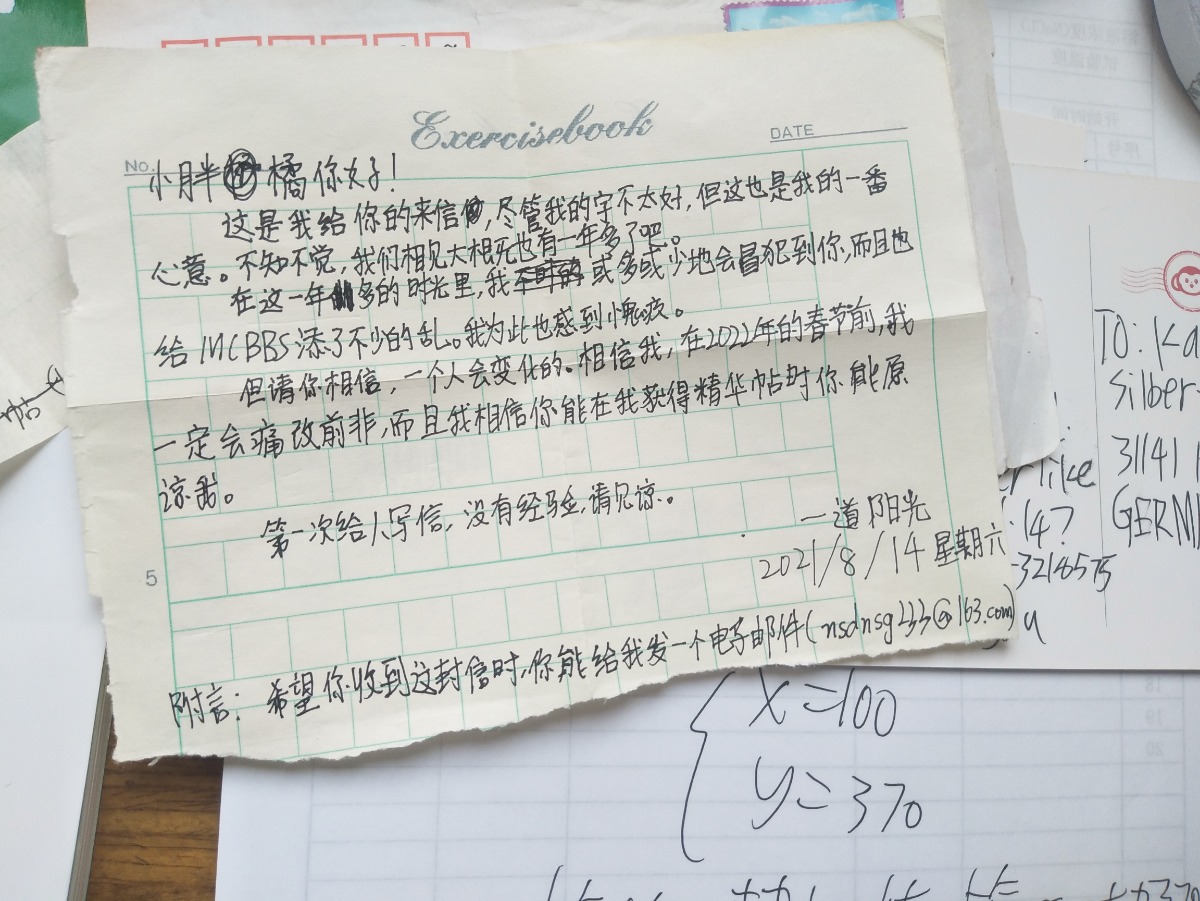 Exercisebook
No.
DATE
小胖橘你好!
这是我给你的来信,尽管我的字不太好,但这也是我的一番
心意。不知不觉,我们相见大概死也有一年多了吧。
在这一年多的时光里,我或多或少地会冒犯到你,而且也
给MCBBS添了不少的乱。我为此也感到愧疚。
但请你相信,一个人会变化的。相信我,在2022年的春节前,我
一定会痛改前非,而且我相信你能在我获得精华帖时你能原
谅我。
第一次给人写信,没有经验,请见谅。
一道阳光
2021/8/14 星期六
5
附言:希望你收到这封信时,你能给我发一个电子邮件(nsdnsg233@163.com)
TO: Ka
Silber
31141
GERM
like
14?
-3218575
u
帖
x=100
y=370
18
19
20